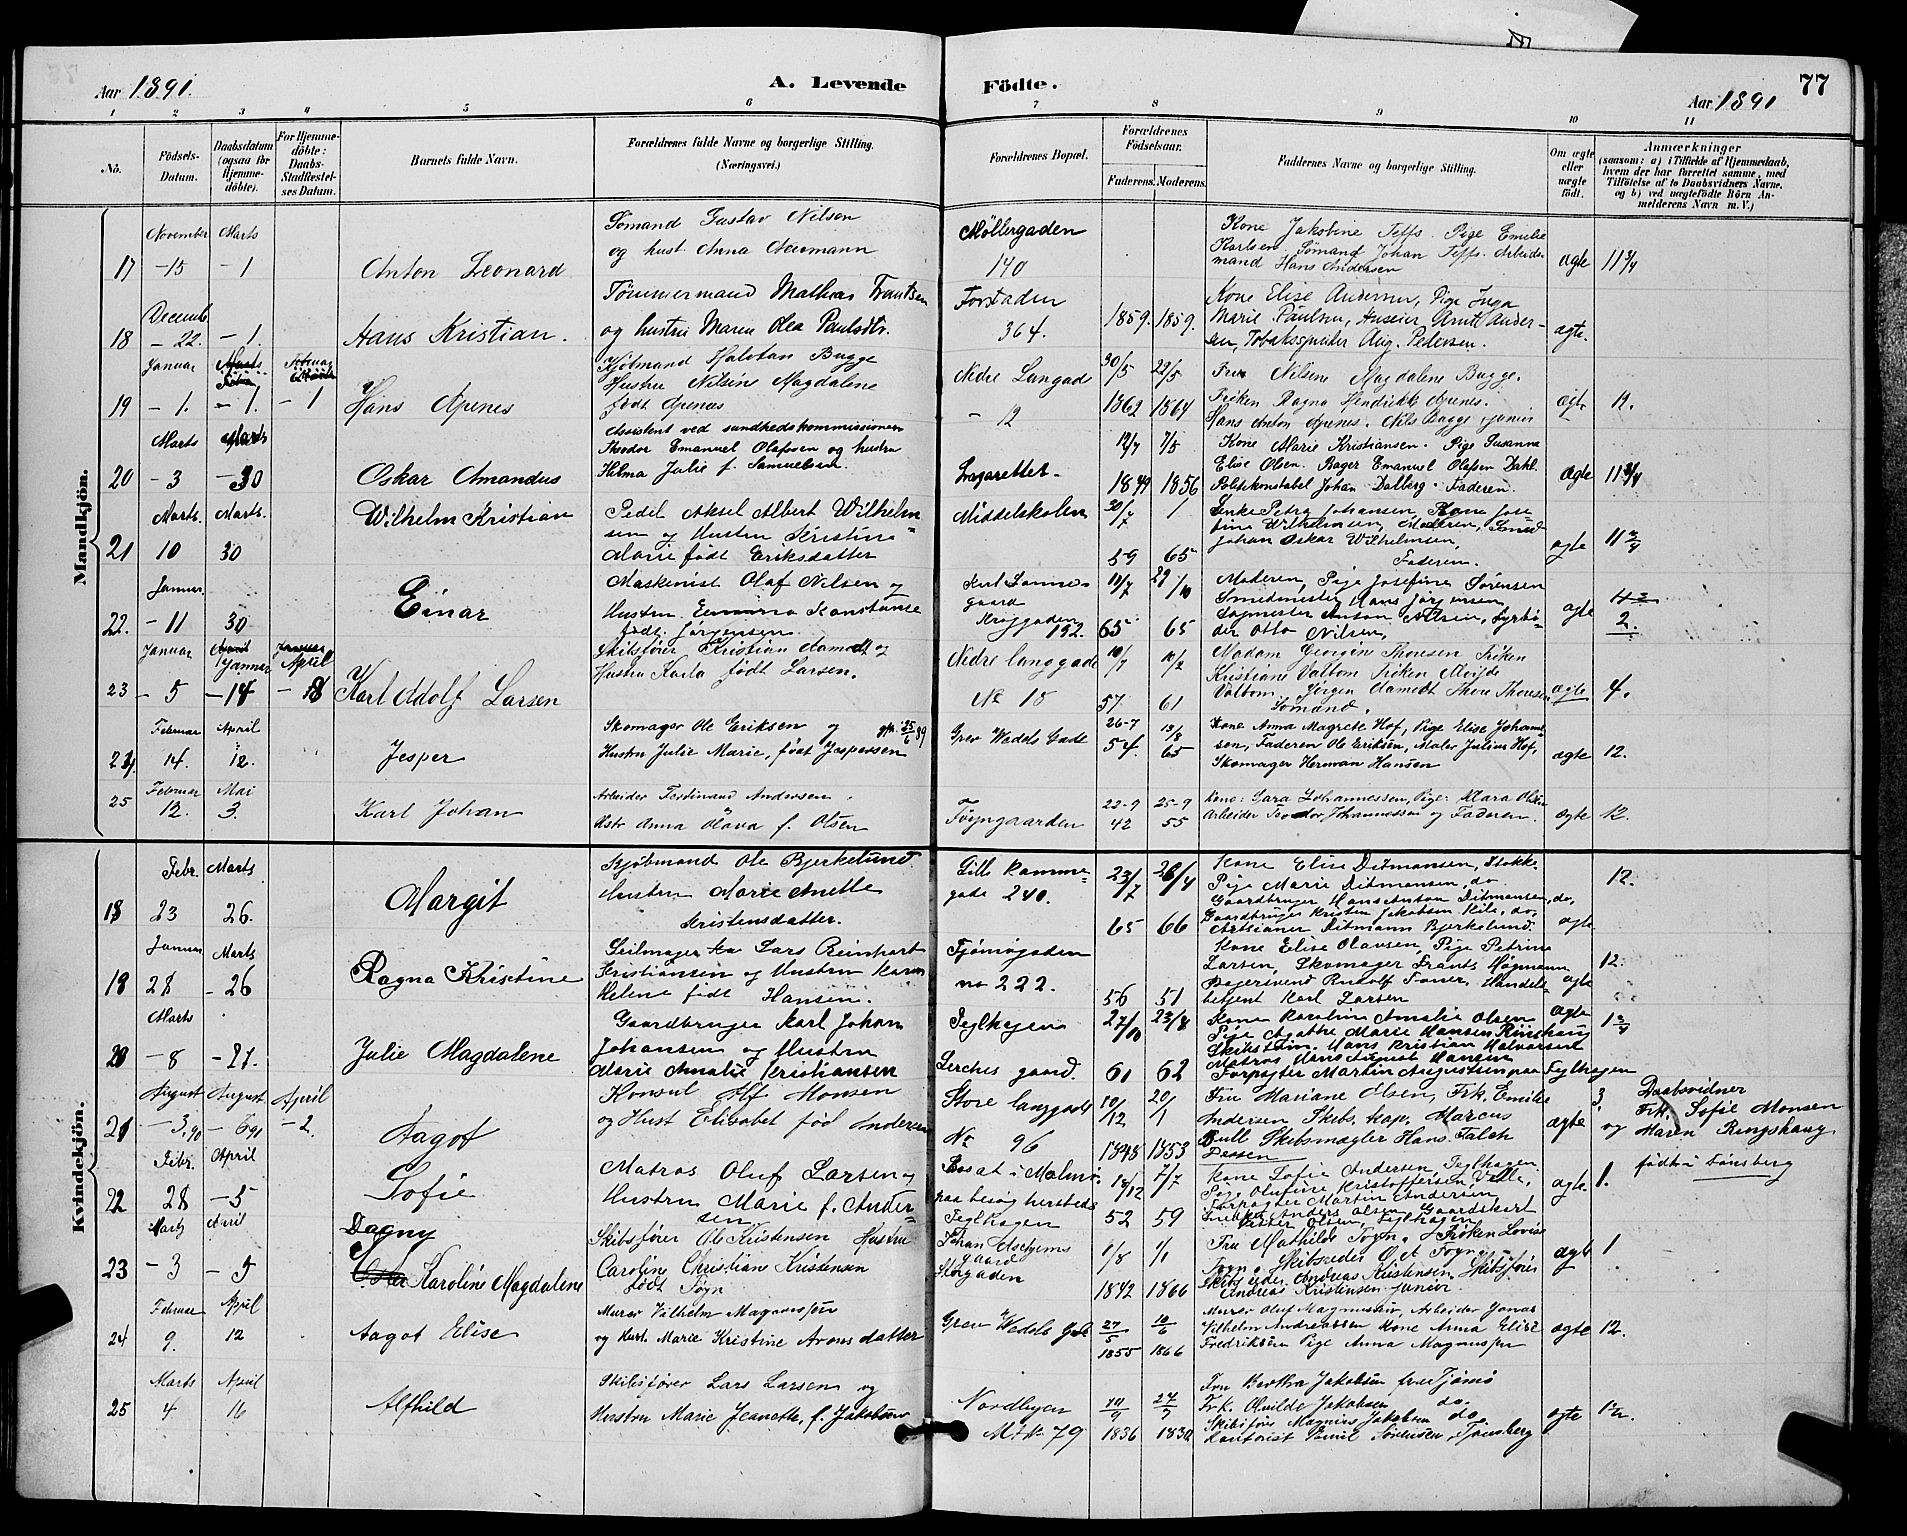 Aar 1891.
A. Levende Födte.
Aar 1891
77
1 2 3 4 5 6 7 8 9 10 11
No.
Födsels-Datum.
Daabsdatum (ogsaa for Hjemme-döbte).
For Hjemme-döbte: Daabs-Stadfæstel-ses Datum.
Barnets fulde Navn.
Forældrenes fulde Navne og borgerlige Stilling. (Næringsvei.)
Forældrenes Bopæl.
Forældrenes Födselsaar.
Faderens. Moderens.
Faddernes Navne og borgerlige Stilling.
Om ægte eller uægte födt.
Anmærkninger
(saasom: a) i Tilfælde af Hjemmedaab,
hvem der har forrettet samme, med
Tilföielse af to Daabsvidners Navne,
og b) ved uægtefödte Börn An-
melderens Navn m. V.)
Mandkjön.
November Marts
17 -15 -1
Anton Leonard
Sømand Gustav Nilsen
og hust. Anna
Møllergaden
140
Kone Jakobine Teffs. Pige Emelie
Karlsen. Sømand Johan Teffs. Arbeids-
mand Hans Andersen
ægte 11 3/4
Decemb.
18 -22. -1.
Hans Kristian.
Tømmermand Mathias Frantsen
og hustru Maren Olea Paulsdtr.
Forstaden
364.
1859. 1859.
Kone Elise Andersen, Pige Inga
Marie Paulsen, Arnt Ander-
sen, Aug. Petersen.
ægte.
Januar
19 -1. -1. -1
Hans Apenes
Kjøbmand Halvdan Bugge
Hustru Nilsine Magdalene
født Apenæs
Nedre Langgade
- 12
30/5 22/5
1862 1864
Fru Nilsine Magdalene Bugge.
Frøken Ragna Hendrikke Apenes.
Hans Anton Apenes. Nils Bugge junior
ægte 12.
Marts Marts
20 -3 -30
Oskar Amandus
Assistent ved sundhedskommissionen
Theodor Emanuel Olafsen og hustru
Helma Julie f. Samuelsen.
Lazarettet
12/7 7/5
1849 1856
Kone Marie Kristiansen. Pige Susanna
Elise Olsen. Bager Emanuel Olafsen Dahl.
Politikonstabel Johan Dalberg. Faderen.
ægte 11 3/4
Marts. Marts.
21 10 30
Wilhelm Kristian
Pedel Aksel Albert Wilhelm
sen og Hustru Kristine
Marie født Eriksdatter
Middelskolen
59 65
Enke Petra Johansen, Kone Jose
fine Wilhelmsen, Moderen, Smed
Johan Oskar Wilhelmsen,
Faderen.
ægte 11 3/4
Januar
22. -11 30
Einar
Maskinist Olaf Nilsen og
Hustru Konstanse
født Jørgensen.
gaard
192.
65 65
Moderen, Pige Josefine Sørensen
Smedmester Hans Jørgensen
Anton Nilsen, Fyrbø-
der Otto Nilsen,
ægte 2.
Januar Januar April
23 -5 -14 -18
Karl Adolf Larsen
Skibsfører Kristian Aamodt og
Hustru Karla født Larsen.
Nedre langgade
No 15
10/7 10/2
57 61
Madam Georgine Thoresen Frøken
Kristiane Valbom Frøken
Valbom Jørgen Aamodt Thore Thoresen
Sømand.
ægte 4.
Februar April
24. 14. 12.
Jesper
Skomager Ole Eriksen og gift 25/6 89
Hustru Julie Marie, født Jespersen
Grev Wedels Gade
26-7 13/8
54. 65
Kone Anna Magrete Hof, Pige Elise Johann
sen, Faderen Ole Eriksen, Maler Julius Hof,
Skomager Herman Hansen
ægte 12.
Februar Mai
25 12. 3.
Karl Johan
Arbeider Ferdinand Andersen.
Hstr Anna Olava f. Olsen
Føyngaarden
22-9 25-9
42 55
Kone: Sara Johannessen, Pige: Klara Olsen
Arbeider Teodor Johannessen og Faderen.
ægte 12.
Kvindekjön.
Febr. Marts
18 23 26.
Margit
Kjøbmand Ole Bjerkelund.
Hustru Marie Anette
Kristensdatter.
Lille Ramme-
gade 240.
23/7 26/4
65 66
Kone Elise Ditmansen, Stokke.
Pige Marie Ditmansen, do.
Gaardbruger Hans Anton Ditmansen, do,
Gaardbruger Kristen Jakobsen Kile, do,
Artsianer Ditmann Bjerkelund.
ægte. 12.
Januar Marts
19 28 -26
Ragna Kristine
Seilmager Lars Reinhart
Kristiansen og Hustru Karen
Helene født Hansen.
Tjømøgaden
no 222.
56 51
Kone Elise Olavsen, Pige Petrine
Larsen, Skomager Frants Høymann
Bagersvend Rudolf, Handels-
betjent Karl Larsen
ægte 12.
Marts
20 -8 -27.
Julie Magdalene
Gaardbruger Karl Johan
Johansen og Hustru
Marie Amalie Kristiansen
Teglhagen
Lerches gaard.
27/10 23/8
61 62
Kone Karoline Amalie Olsen
Pige Agathe Marie Hansen Ringshaug
Hans Kristian Halvorsen
Matros Hans August Hansen
Forpagter Martin Augustinpaa Teglhagen
ægte 1 3/4
August August April
21 -3,90 -6 90 -2.
Aagot
Konsul Alf Monsen
og Hust Elisabet fød Andersen
Store langgade
No 96
10/12 20/1
1848 1853
Fru Mariane Olsen, Frk. Emilie
Andersen Skibs.kap. Marcus
Bull Skibsmægler Hans Falch
ægte 3.
Daabsvidner
Frk. Sofie Monsen
og Maren Ringshaug
født i Tønsberg
Febr. April
22 28 -5
Sofie
Matros Oluf Larsen og
Hustru Marie f. Ander-
sen
Bosat i Malmø,
paa besøg hersteds
Teglhagen
18/12 7/7
52 59
Kone Sofie Andersen, Teglhagen
Pige Olufine Kristoffersen,
Forpagter Martin Andersen,
Anders Olsen Gaardskarl
Petter Olsen, Teglhagen
ægte 1.
Marts April
23 -3 -5
Dagny
Karoline Magdalene
Skibsfører Ole Kristensen Hustru
Caroline Christiane Kristensen
født Føyn
gaard
Storgaden
1/8 1/1
1842 1866
Fru Mathilde Foyn. Frøken Lovise
Foyn. Skibsreder
Skibsreder Andreas Kristensen. Skibsfører
Andreas Kristensen junior.
ægte 1
Februar April
24 9. 12
Aagot Elise
Murer Vilhelm Magnussen
og Hust. Marie Kristine Aronsdatter
Grev Wedels Gd.
27/5 10/6
1855 1866
Murer Oluf Magnussen, Arbeider Jonas
Vilhelm Andreassen Kone Anna Elise
Fredriksen Pige Anna Magnussen
ægte 12.
Marts April
25 4 16
Alfhild
Skibsfører Lars Larsen og
Hustru Marie Jeanette, f. Jakobsen
Nordbyen
M.No. 79
10/9 27/9
1836
Fru Berthea Jakobsen fra Tjømø
Frk. Jakobsen do.
Skibsfører Magnus Jakobsen do.
Kontorist Sørensen, Tønsberg
ægte 12.